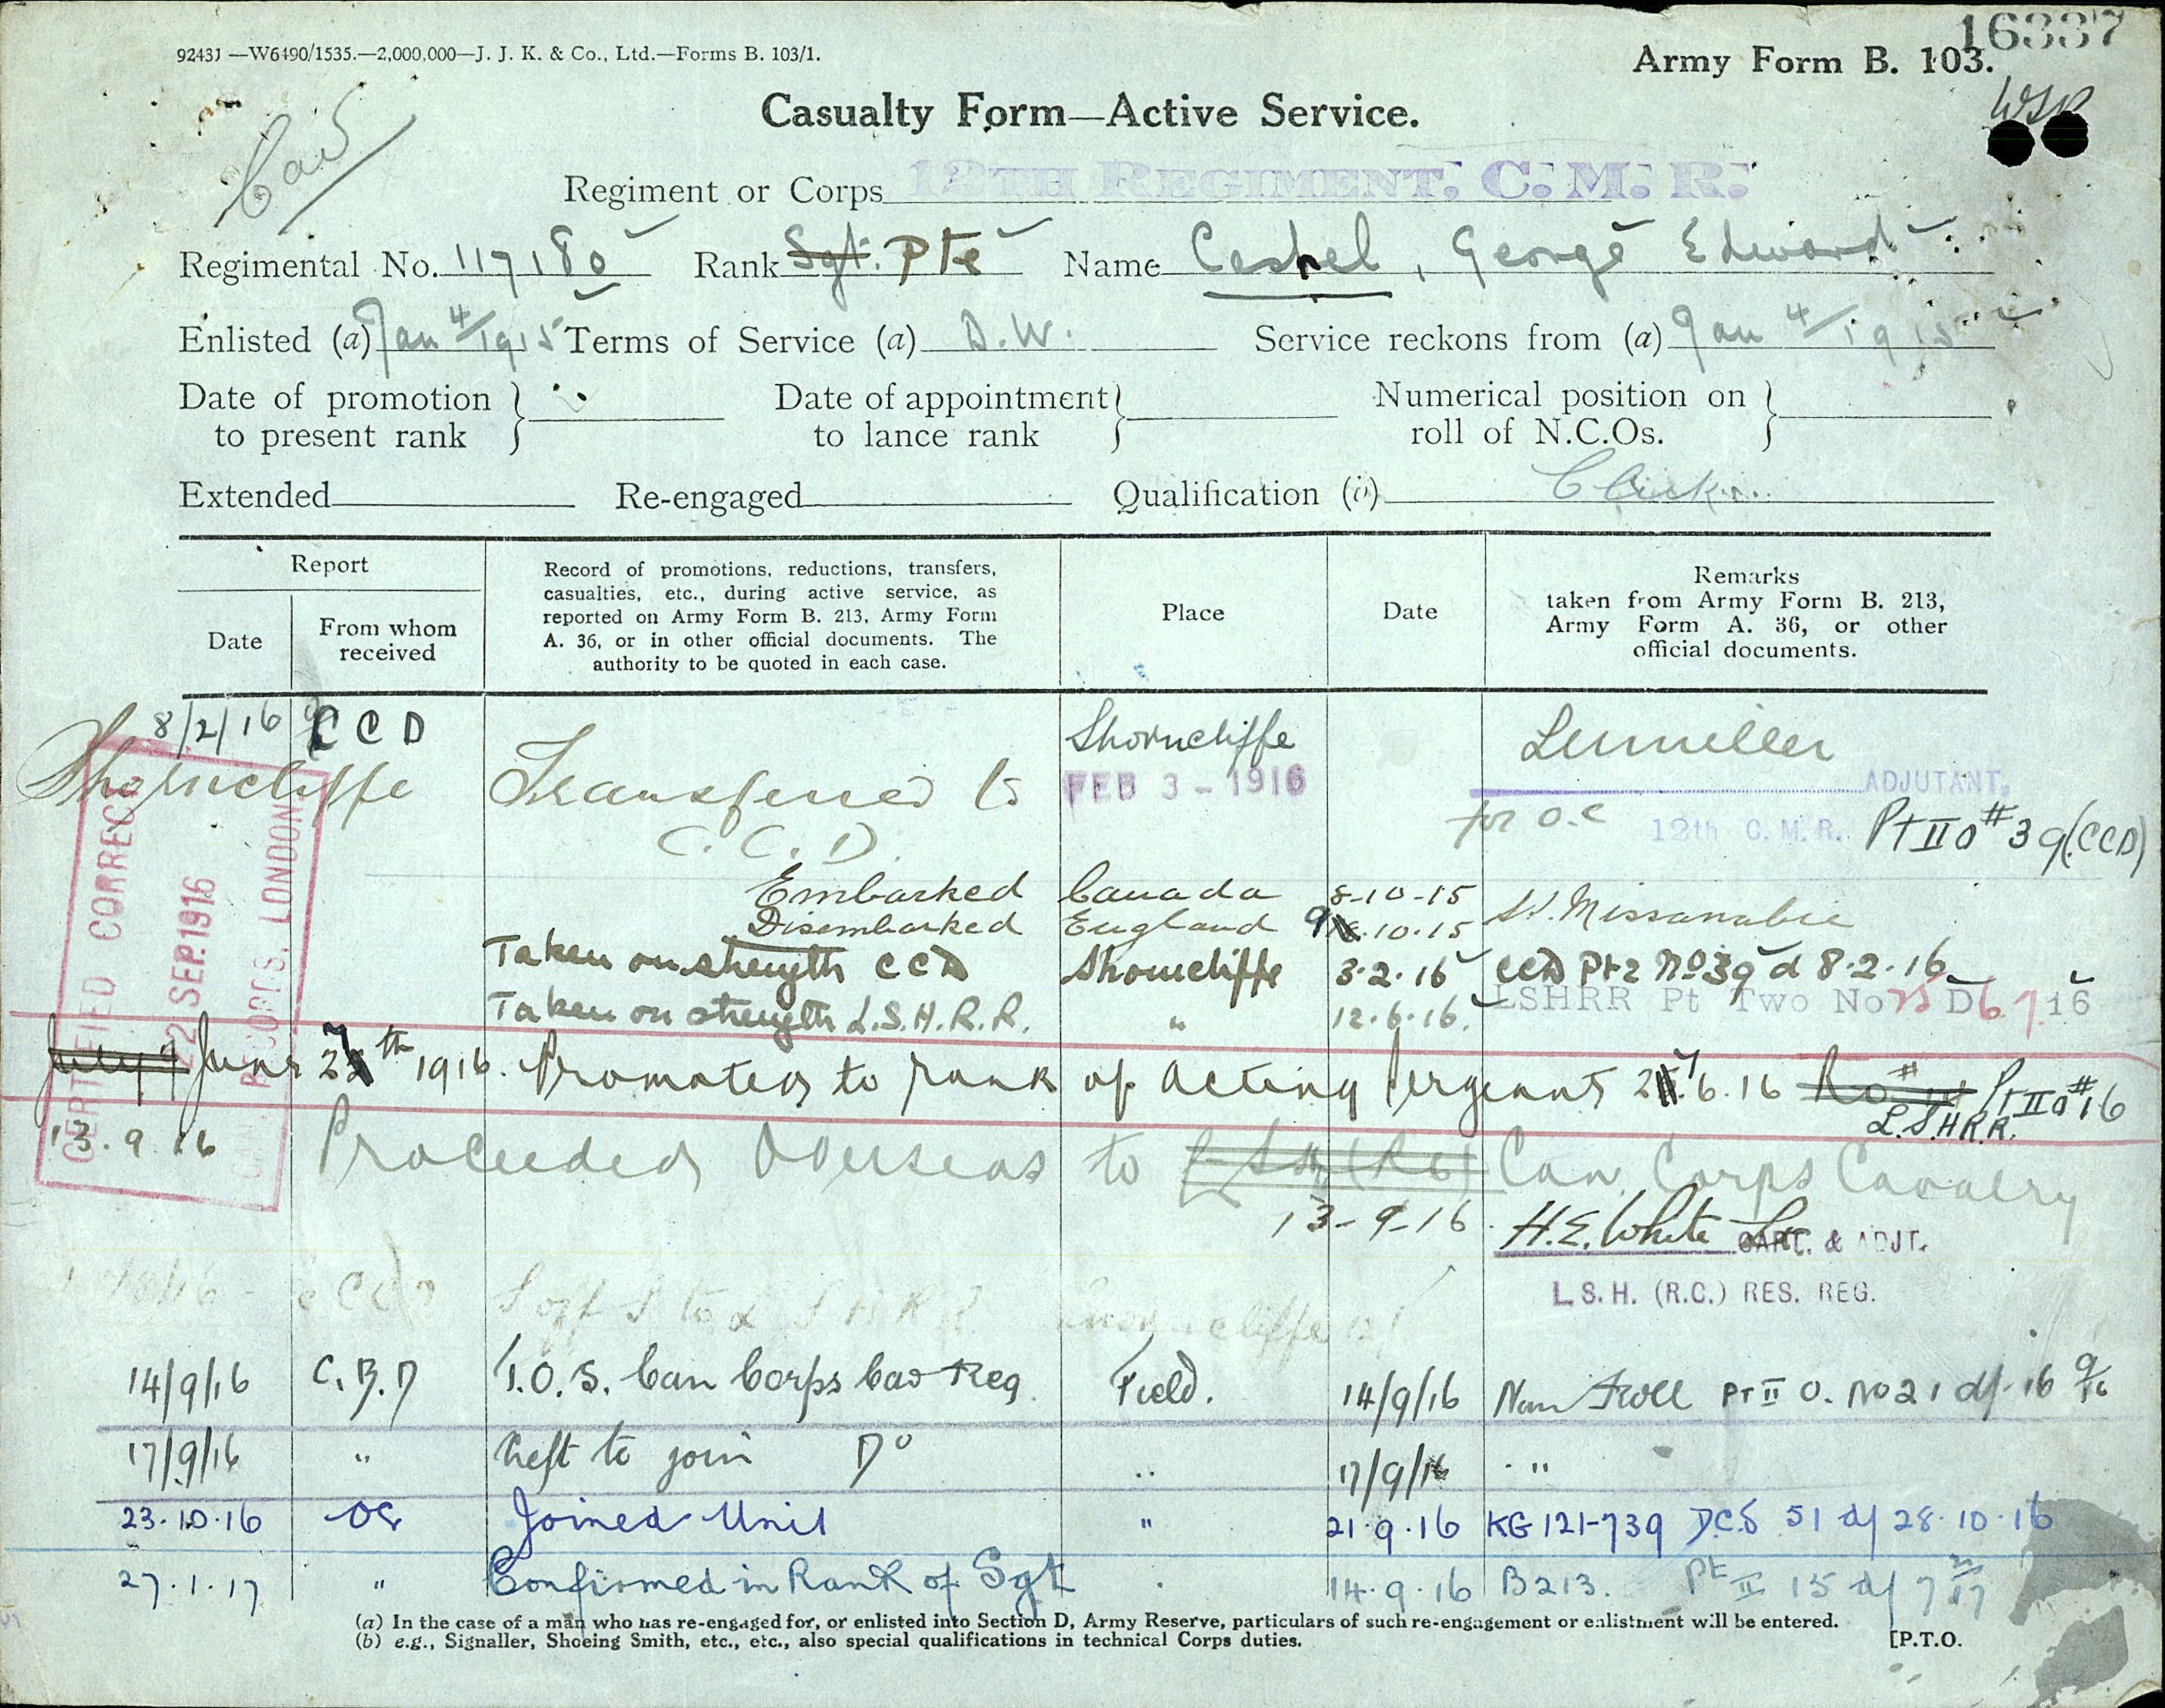 16337
92431 —W6490/1535.—2,000,000—J. J. K. & Co., Ltd.—Forms B. 103/1.
Army Form B. 103.
Casualty Form—Active Service.
Regiment or Corps 12TH REGIMENT. C. M. R.
Regimental No. 117180 Rank Sgt. Pte Name Cashel, George Edward
Enlisted (a) Jan 4/1915 Terms of Service (a) D.W. Service reckons from (a) Jan 4/1915
Date of promotion to present rank Date of appointment to lance rank Numerical position on roll of N.C.Os.
Extended Re-engaged Qualification (b)
Report
Date From whom received
Record of promotions, reductions, transfers, casualties, etc., during active service, as reported on Army Form B. 213, Army Form A. 36, or in other official documents. The authority to be quoted in each case.
Place
Date
Remarks taken from Army Form B. 213, Army Form A. 36, or other official documents.
8/2/16 CCD Shorncliffe
Shorncliffe Transferred to FEB 3 - 1916 ADJUTANT,
C.C.D. for O.C 12th C. M. R. Pt II O #39 (CCD)
Embarked Canada 8-10-15 S.S. Missanabie
Disembarked England 9.10.15
Taken on strength CCD Shorncliffe 3.2.16 CCD Pt 2 No 39 d 8.2.16
Taken on strength L.S.H.R.R. " 12.6.16. LSHRR Pt Two No 25 D 6.7.16
CERTIFIED CORRECT
22 SEP. 1916
CAN. RECORDS, LONDON
July June 27th 1916. Promoted to rank of Acting Sergeant 27.6.16 Pt II O #16
L.S.H.R.R.
13.9.16 Proceeded Overseas to Can Corps Cavalry
13-9-16 H.E. White Lt CAPT. & ADJT.
L.S.H. (R.C.) RES. REG.
CCD S off S to L S H R R Shorncliffe
14/9/16 C.B.D T.O.S. Can Corps Cav Reg Field. 14/9/16 Nom Roll Pt II O. No 21 d/- 16 9/16
17/9/16 " Left to join Do " 17/9/16 "
23.10.16 OC Joined Unit " 21.9.16 KG 121-739 DCS 51 d/ 28.10.16
27.1.17 " Confirmed in Rank of Sgt 14.9.16 B213. Pt II 15 d/ 7 2/17
(a) In the case of a man who has re-engaged for, or enlisted into Section D, Army Reserve, particulars of such re-engagement or enlistment will be entered.
(b) e.g., Signaller, Shoeing Smith, etc., etc., also special qualifications in technical Corps duties.
[P.T.O.